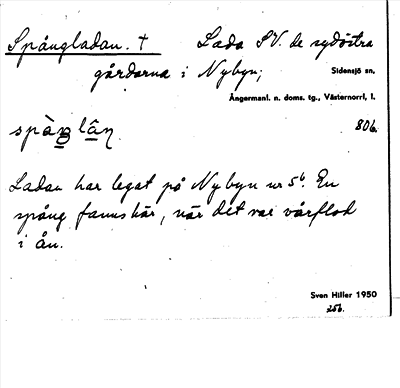 Spångladan. † Lada SV. de sydöstra
gårdarna i Nybyn; Sidensjö sn.
Ångermanl. n. doms. tg., Västernorrl. l.
spàŋlân 806.
Ladan har legat på Nybyn nr 5⁶. En
spång fanns här, när det var vårflod
i ån.
Sven Hiller 1950
256.